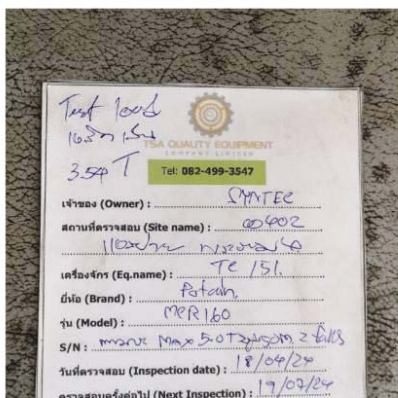 Test load
3.54 T
TSA QUALITY EQUIPMENT
COMPANY LIMITED
Tel: 082-499-3547
เจ้าของ (Owner) : SYNTEC
สถานที่ตรวจสอบ (Site name) :
เครื่องจักร (Eq.name) : TC 151.
ยี่ห้อ (Brand) : Potain.
รุ่น (Model) : MCR160
S/N : MAX 5.0T 2 falls
วันที่ตรวจสอบ (Inspection date) : 18/04/24
ตรวจสอบครั้งต่อไป (Next Inspection) : 19/07/24